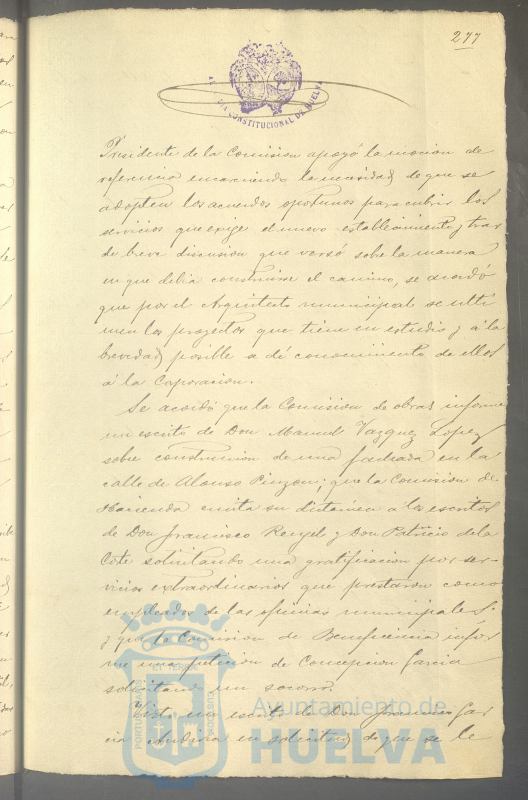 277
CONSTITUCIONAL DE HUELVA
Presidente de la Comision apoyó la mocion de
referencia encareciendo la necesidad de que se
adopten los acuerdos oportunos para cubrir los
servicios que exige el nuevo establecimiento y tras
de breve discusion que versó sobre la manera
en que debia construirse el camino, se acordó
que por el Arquitecto municipal se ulti
men los proyectos que tiene en estudio y á la
brevedad posible se dé conocimiento de ellos
á la Corporacion.
Se acordó que la Comision de obras informe
un escrito de Don Manuel Vazquez Lopez
sobre construccion de una fachada en la
calle de Alonso Pinzon; que la Comision de
Hacienda emita su dictámen a los escritos
de Don Francisco Rengel y Don Patricio de la
Cote solicitando una gratificacion por ser-
vicios extraordinarios que prestaron como
empleados de las oficinas municipales
y que la Comision de Beneficencia infor
me una peticion de Concepcion Garcia
solicitando un socorro.
Visto un escrito de Don Francisco Gar
cia en solicitud de que se le
Ayuntamiento de
HUELVA